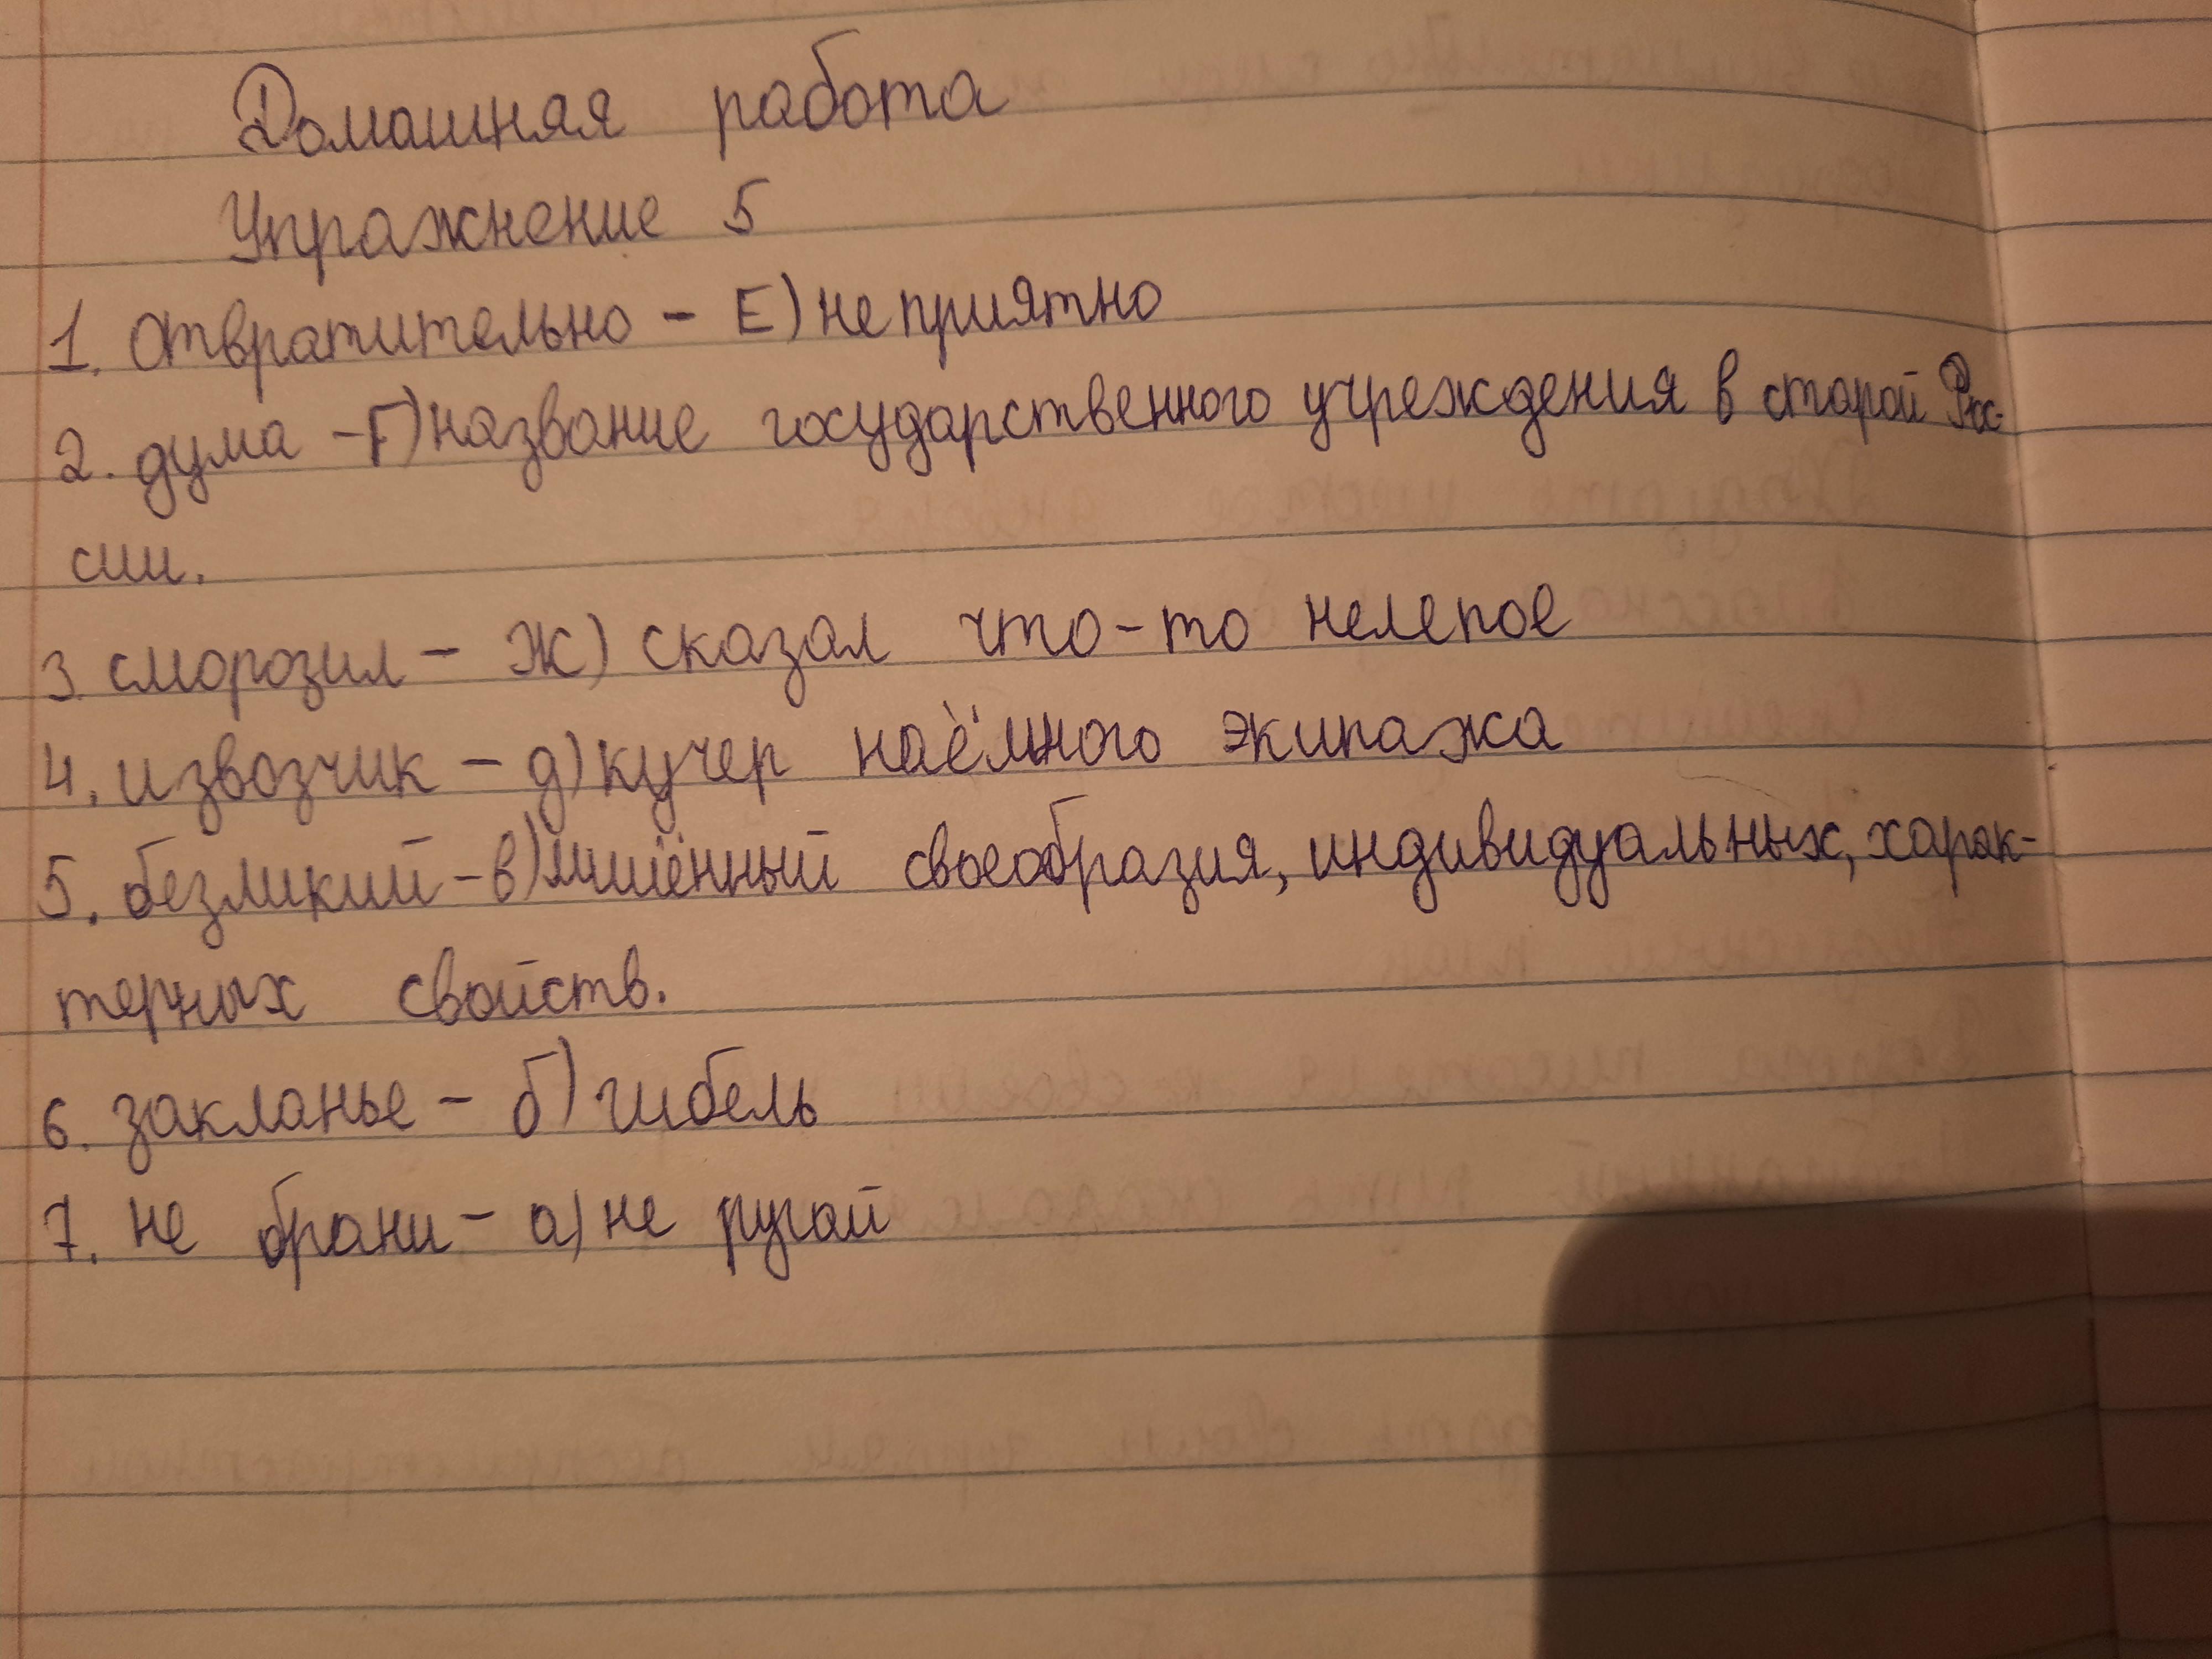 Домашняя работа
Упражнение 5
1. Отвратительно - Е) неприятно
2. дума - Г) название государственного учреждения в старой Рос-
сии.
3. сморозил - Ж) сказал что-то нелепое
4. извозчик - д) кучер наёмного экипажа
5. безликий - в) лишённый своеобразия, индивидуальных, харак-
терных свойств.
6. закланье - б) гибель
7. не брани - а) не ругай